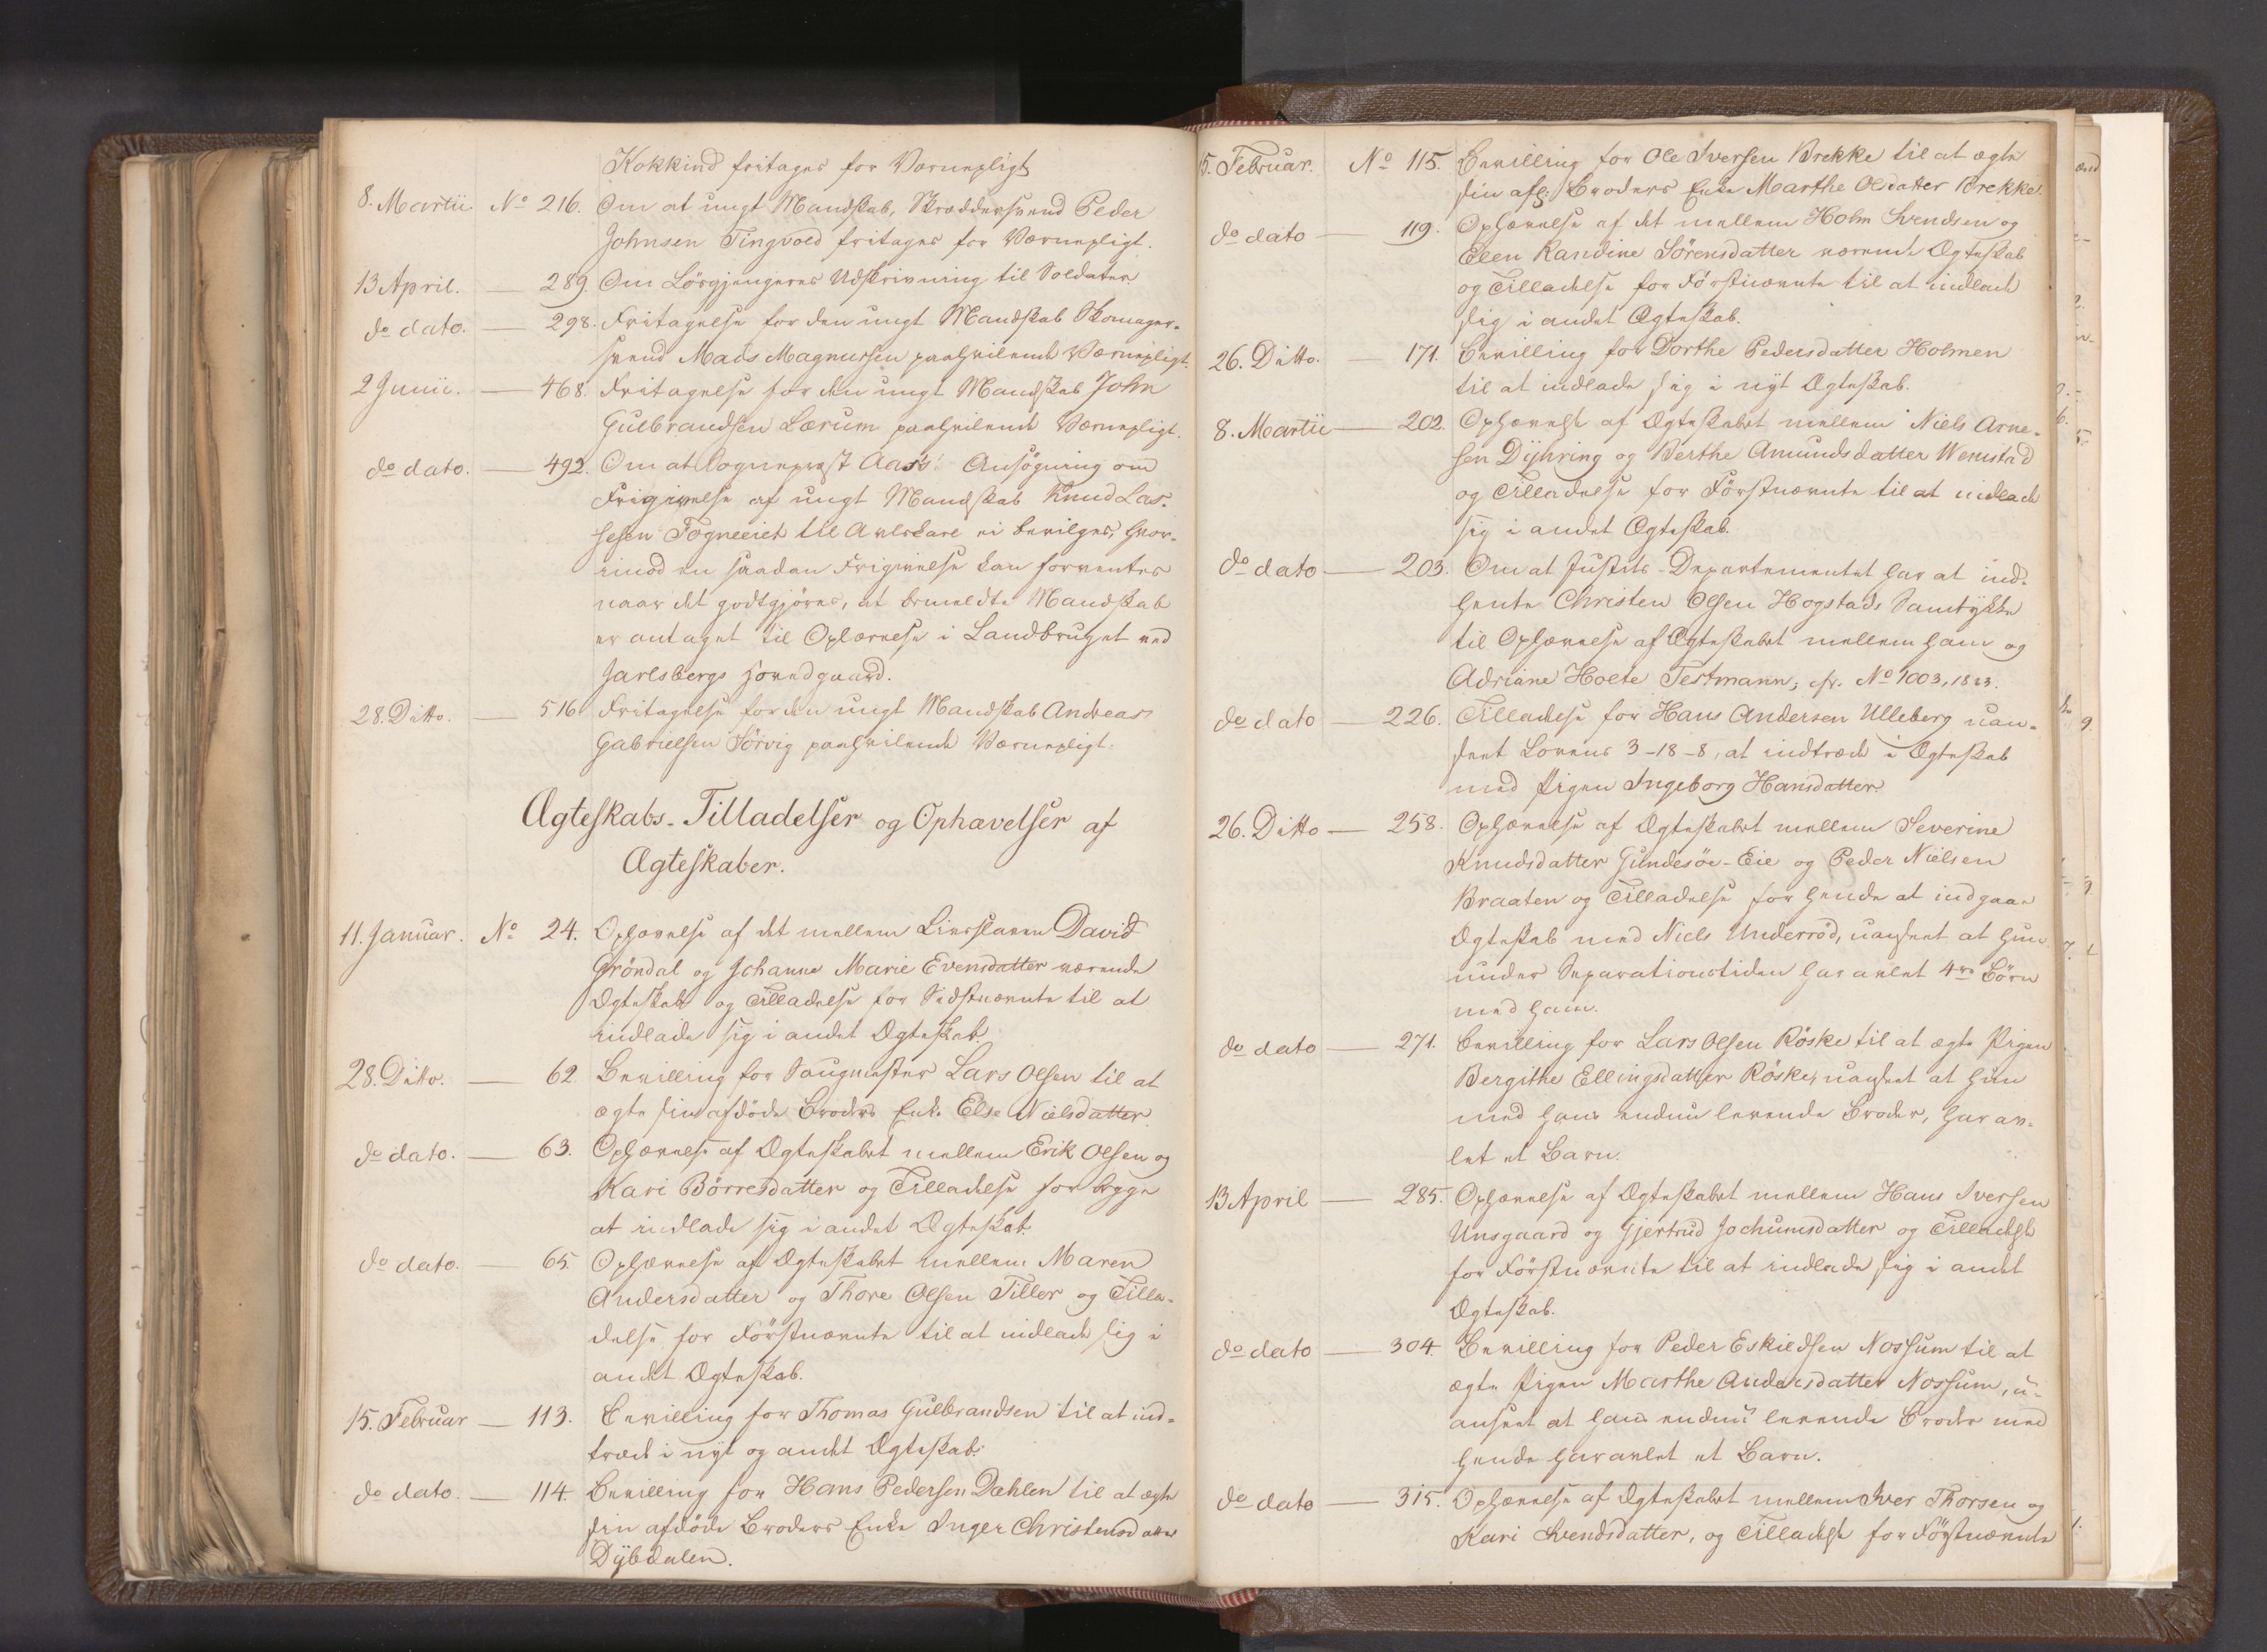 Kokkind fritages for Værnepligt
8. Martii. No 216. Om at ungt Mandskab, Skræddersvend Peder
Johnsen Tingvold fritages for Værnepligt.
13 April. — 289. Om Lösgjængeres Udskrivning til Soldater.
do dato. — 298. Fritagelse for den ungt Mandskab Skomager-
svend Mads Magnussen paahvilende Værnepligt.
2 Junii. — 468. Fritagelse for den ungt Mandskab John
Gulbrandsen Lærum paahvilende Værnepligt.
do dato. — 492. Om at Sogneprest Aas's Ansögning om
Frigivelse af ungt Mandskab Knud Las-
sesen Fogneeiet til Avlskarl ei bevilges, hvor-
imod en saadan Frigivelse kan forventes
naar det godtgjöres, at bemeldte Mandskab
er antaget til Oplærelse i Landbruget ved
Jarlsbergs Hovedgaard.
28. Ditto. — 516 Fritagelse for den ungt Mandskab Andreas
Gabrielsen Sörvig paahvilende Værnepligt.
Ægteskabs-Tilladelser og Ophævelser af
Ægteskaber.
11. Januar. No 24. Ophævelse af det mellem Livsslaven David
Gröndal og Johanne Marie Evensdatter værende
Ægteskab og Tilladelse for Sidstnævnte til at
indlade sig i andet Ægteskab.
28. Ditto. — 62. Bevilling for Saugmester Lars Olsen til at
ægte sin afdöde Broders Enke Else Nielsdatter.
do dato. — 63. Ophævelse af Ægteskabet mellem Erik Olsen og
Kari Börresdatter og Tilladelse for begge
at indlade sig i andet Ægteskab.
do dato. — 65. Ophævelse af Ægteskabet mellem Maren
Andersdatter og Thore Olsen Tiller og Tilla-
delse for Förstnævnte til at indlade sig i
andet Ægteskab.
15. Februar — 113. Bevilling for Thomas Gulbrandsen til at ind-
træde i nyt og andet Ægteskab.
do dato. — 114. Bevilling for Hans Pedersen Dæhlen til at ægte
sin afdöde Broders Enke Inger Christensdatter
Dybdalen.
15. Februar. No 115. Bevilling for Ole Iversen Brekke til at ægte
sin afg: Broders Enke Marthe Olsdatter Brekke.
do dato — 119. Ophævelse af det mellem Holm Svendsen og
Elen Randine Sörensdatter værende Ægteskab
og Tilladelse for Förstnævnte til at indlade
sig i andet Ægteskab.
26. Ditto. 171. Bevilling for Dorthe Pedersdatter Holmen
til at indlade sig i nyt Ægteskab.
8. Martii — 202. Ophævelse af Ægteskabet mellem Niels Arne-
sen Dyhring og Berthe Amundsdatter Wemstad
og Tilladelse for Förstnævnte til at indlade
sig i andet Ægteskab.
do dato — 203. Om at Justits-Departementet har at ind-
hente Christen Olsen Hogstads Samtykke
til Ophævelse af Ægteskabet mellem ham og
Adriane Holte Testmann, cfr. No 1003, 1823.
do dato — 226. Tilladelse for Hans Andersen Ulleberg uan-
seet Lovens 3-18-8, at indtræde i Ægteskab
med Pigen Ingeborg Hansdatter.
26. Ditto — 258. Ophævelse af Ægteskabet mellem Severine
Knudsdatter Gundesöe-Eie og Peder Nielsen
Braaten og Tilladelse for hende at indgaae
Ægteskab med Niels Underröd, uanseet at hun
under Separationstiden har avlet 4re Börn
med ham.
do dato — 271. Bevilling for Lars Olsen Röske til at ægte Pigen
Bergithe Ellingsdatter Röske, uanseet at hun
med hans endnu levende Broder, har av-
let et Barn.
13 April — 285. Ophævelse af Ægteskabet mellem Hans Iversen
Unsgaard og Gjertrud Jochumsdatter og Tilladelse
for Förstnævnte til at indlade sig i andet
Ægteskab.
do dato — 304. Bevilling for Peder Eskildsen Nossum til at
ægte Pigen Marthe Andersdatter Nossum, u-
anseet at hans endnu levende Broder med
hende har avlet et Barn.
do dato — 315. Ophævelse af Ægteskabet mellem Iver Thorsen og
Kari Svendsdatter, og Tilladelse for Förstnævnte